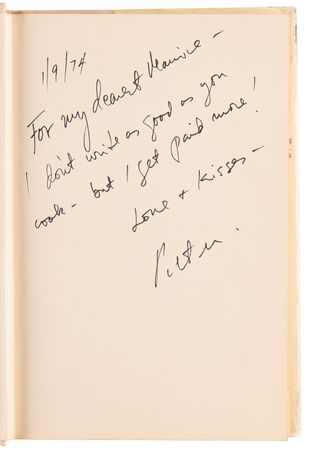 1/9/74
For my dearest Maurice –
I don't write as good as you
cook – but I get paid more!
Love + Kisses –